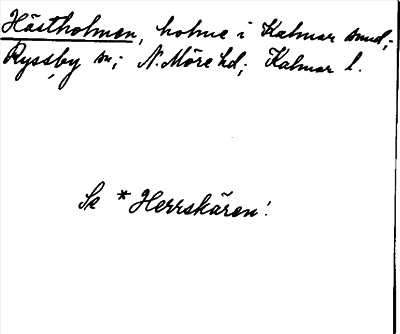 Hästholmen, holme i Kalmar sund;
Ryssby sn; N. Möre hd; Kalmar l.
Se *Herrskären!